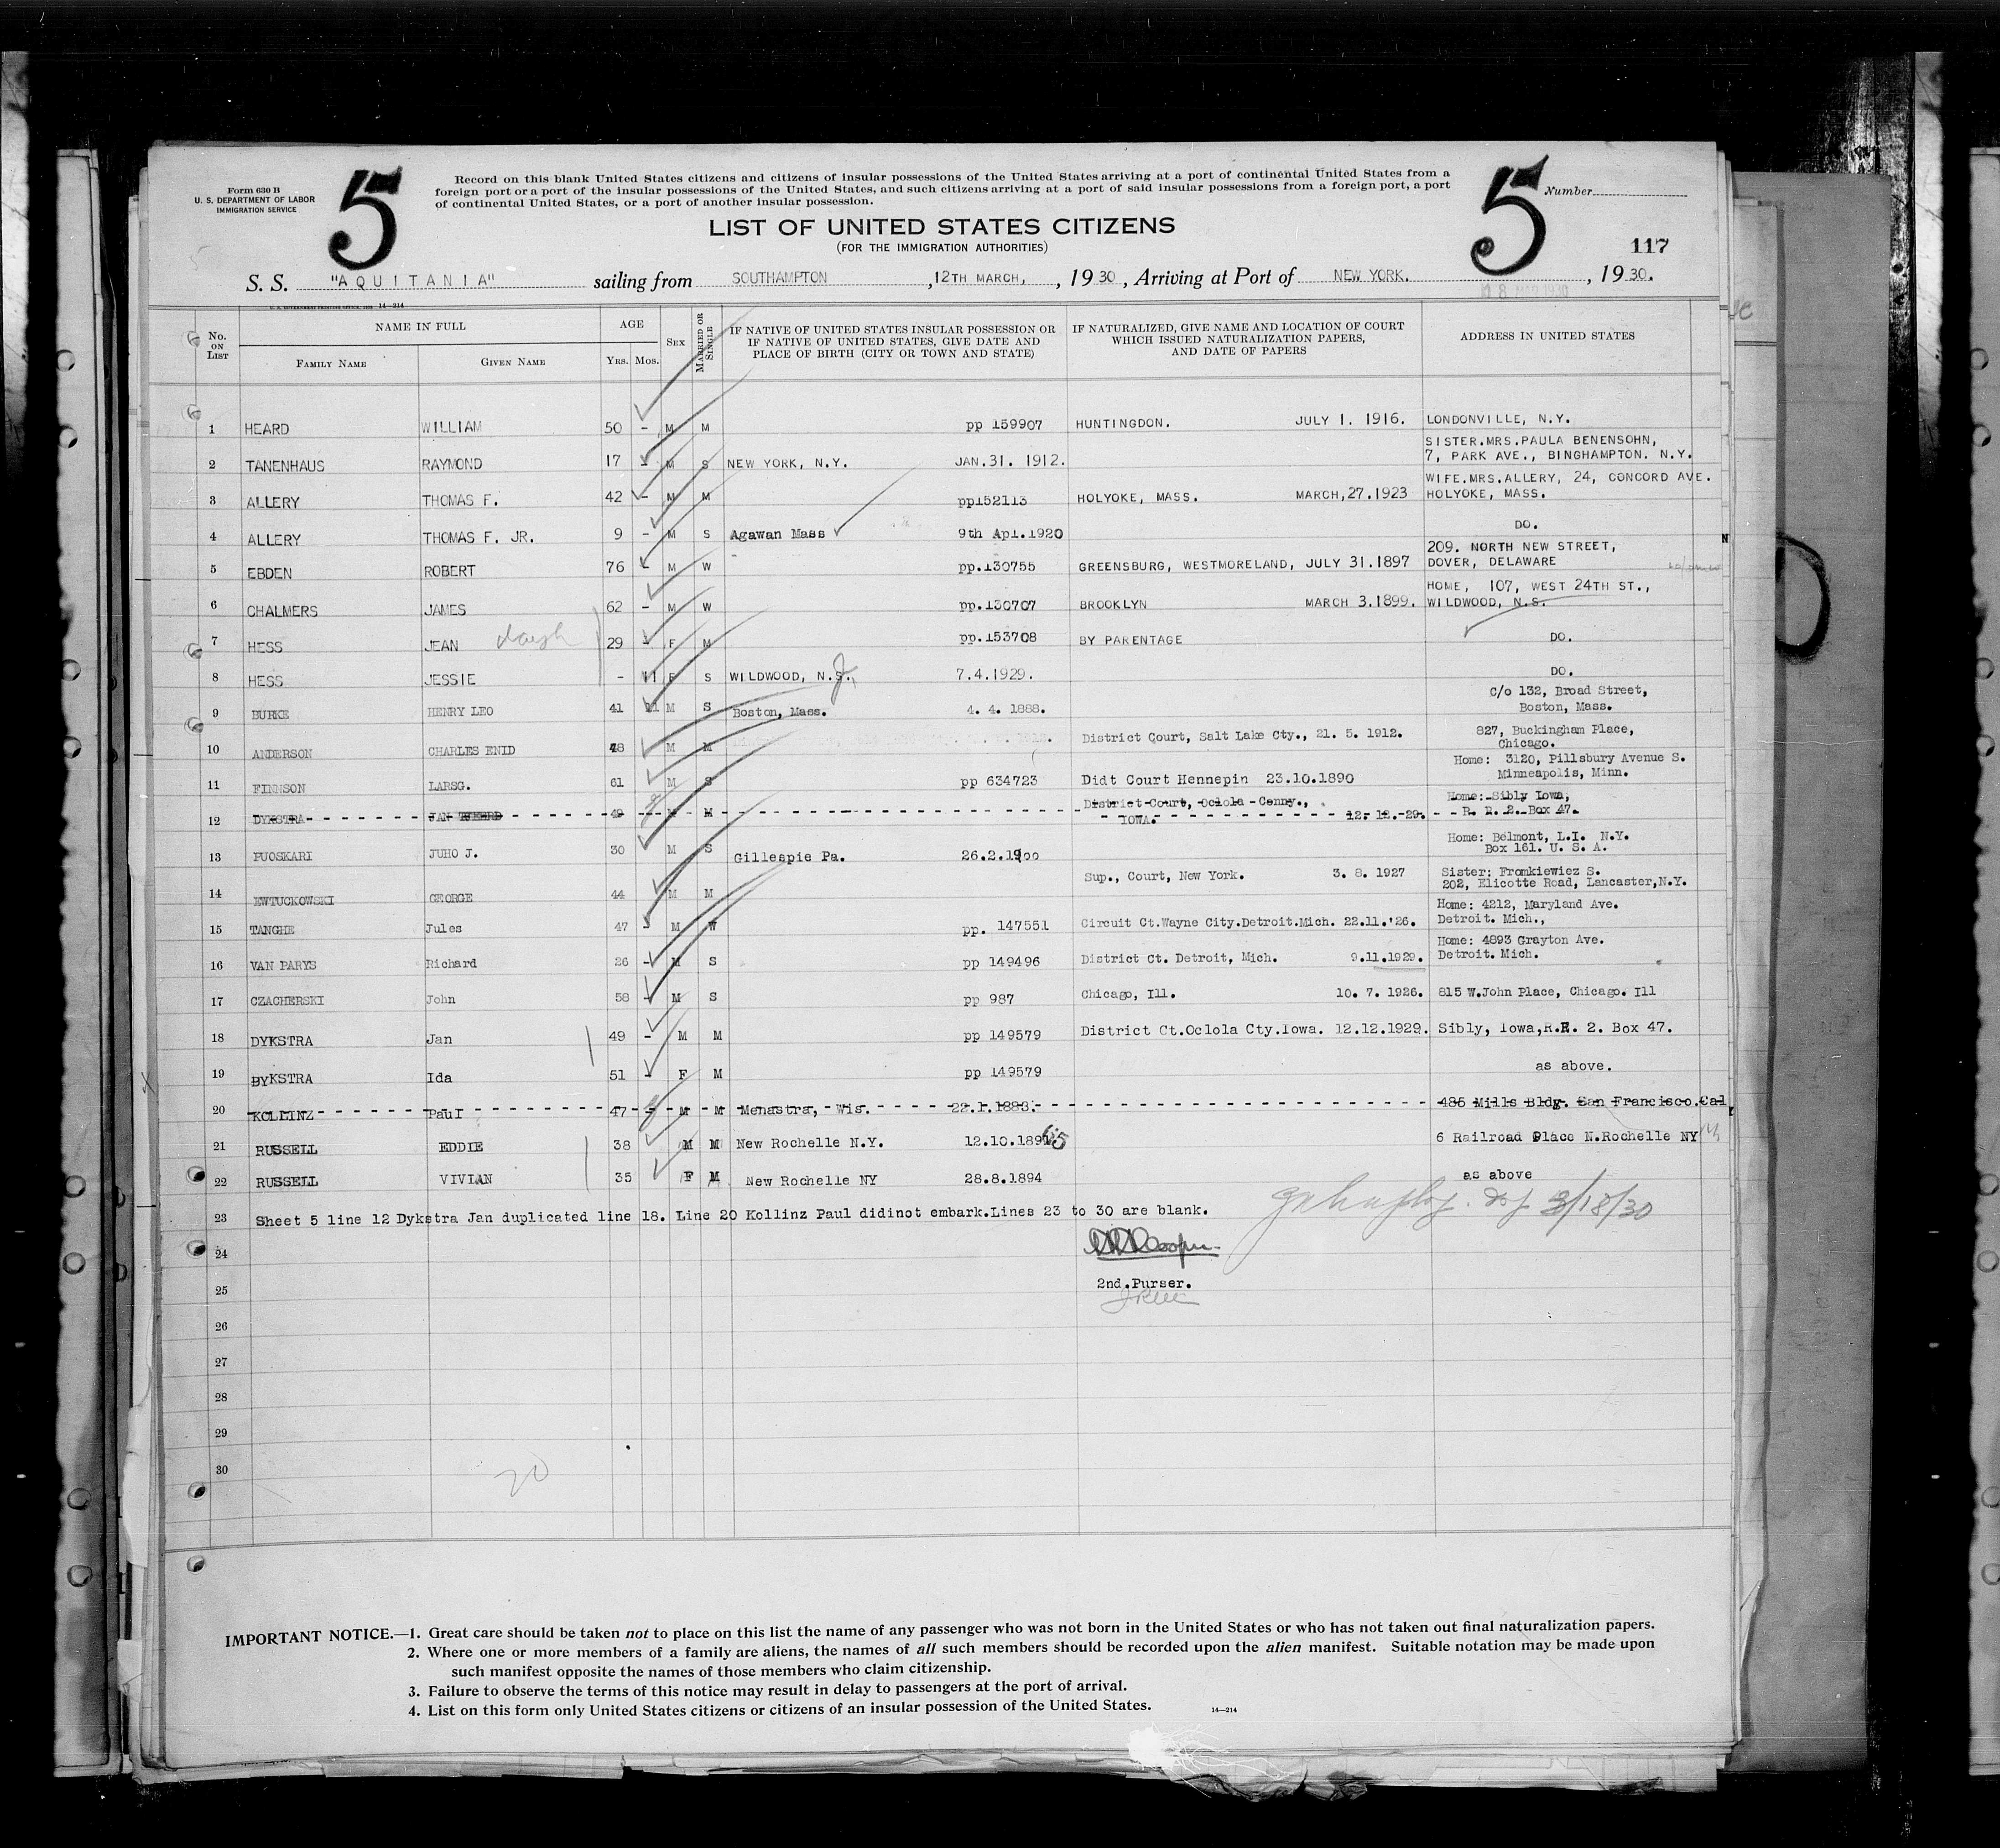 Form 630 B
U. S. DEPARTMENT OF LABOR
IMMIGRATION SERVICE
5
Record on this blank United States citizens and citizens of insular possessions of the United States arriving at a port of continental United States from a
foreign port or a port of the insular possessions of the United States, and such citizens arriving at a port of said insular possessions from a foreign port, a port
of continental United States, or a port of another insular possession.
5
Number
LIST OF UNITED STATES CITIZENS
(FOR THE IMMIGRATION AUTHORITIES)
117
S. S. "AQUITANIA" sailing from SOUTHAMPTON, 12TH MARCH, , 1930, Arriving at Port of NEW YORK. , 1930.
14—214
No. ON LIST
NAME IN FULL
FAMILY NAME
GIVEN NAME
AGE
YRS. MOS.
SEX
MARRIED OR SINGLE
IF NATIVE OF UNITED STATES INSULAR POSSESSION OR
IF NATIVE OF UNITED STATES, GIVE DATE AND
PLACE OF BIRTH (CITY OR TOWN AND STATE)
IF NATURALIZED, GIVE NAME AND LOCATION OF COURT
WHICH ISSUED NATURALIZATION PAPERS,
AND DATE OF PAPERS
ADDRESS IN UNITED STATES
1 HEARD WILLIAM 50 - M M pp 159907 HUNTINGDON. JULY 1. 1916. LONDONVILLE, N.Y.
SISTER.MRS.PAULA BENENSOHN,
2 TANENHAUS RAYMOND 17 - M S NEW YORK, N.Y. JAN.31. 1912. 7, PARK AVE., BINGHAMPTON. N.Y.
WIFE.MRS.ALLERY, 24, CONCORD AVE.
3 ALLERY THOMAS F. 42 - M M pp152113 HOLYOKE, MASS. MARCH,27.1923 HOLYOKE, MASS.
4 ALLERY THOMAS F. JR. 9 - M S Agawan Mass 9th Apl.1920 DO.
209. NORTH NEW STREET,
5 EBDEN ROBERT 76 - M W pp.130755 GREENSBURG, WESTMORELAND, JULY 31.1897 DOVER, DELAWARE
HOME, 107, WEST 24TH ST.,
6 CHALMERS JAMES 62 - M W pp.130707 BROOKLYN MARCH 3.1899. WILDWOOD, N.S.
7 HESS JEAN daugh 29 - F M pp.153708 BY PARENTAGE DO.
8 HESS JESSIE - 11 F S WILDWOOD, N.J. 7.4.1929. DO.
C/o 132, Broad Street,
9 BURKE HENRY LEO 41 11 M S Boston, Mass. 4. 4. 1888. Boston, Mass.
10 ANDERSON CHARLES ENID 48 M M District Court, Salt Lake Cty., 21. 5. 1912. 827, Buckingham Place,
Chicago.
Home: 3120, Pillsbury Avenue S.
11 FINNSON LARSG. 61 M S pp 634723 Didt Court Hennepin 23.10.1890 Minneapolis, Minn.
District Court, Oclola Conny., Home: Sibly Iowa,
12 DYKSTRA JAN 49 M M IOWA. 12. 12. 29. R. R. 2. Box 47.
Home: Belmont, L.I. N.Y.
13 PUOSKARI JUHO J. 30 M S Gillespie Pa. 26.2.1900 Box 161. U. S. A.
Sup., Court, New York. 3. 8. 1927 Sister: Fromkiewiez S.
14 EWTUCKOWSKI GEORGE 44 M M 202, Elicotte Road, Lancaster,N.Y.
Home: 4212, Maryland Ave.
15 TANGHE Jules 47 - M W pp. 147551 Circuit Ct.Wayne City.Detroit.Mich. 22.11.'26. Detroit. Mich.,
Home: 4893 Grayton Ave.
16 VAN PARYS Richard 26 - M S pp 149496 District Ct. Detroit, Mich. 9.11.1929. Detroit. Mich.
17 CZACHERSKI John 58 - M S pp 987 Chicago, Ill. 10. 7. 1926. 815 W.John Place, Chicago. Ill
18 DYKSTRA Jan 49 - M M pp 149579 District Ct.Oclola Cty.Iowa. 12.12.1929. Sibly, Iowa,R.R. 2. Box 47.
19 DYKSTRA Ida 51 - F M pp 149579 as above.
20 KOLLINZ Paul 47 - M M Menastra, Wis. 22.1.1883. 485 Mills Bldg. San Francisco.Cal
21 RUSSELL EDDIE 38 M M New Rochelle N.Y. 12.10.1891 6 Railroad Place N.Rochelle NY
22 RUSSELL VIVIAN 35 F M New Rochelle NY 28.8.1894 as above
23 Sheet 5 line 12 Dykstra Jan duplicated line 18. Line 20 Kollinz Paul didinot embark.Lines 23 to 30 are blank.
3/18/30
24
25 2nd.Purser.
26
27
28
29
30
20
IMPORTANT NOTICE.—1. Great care should be taken not to place on this list the name of any passenger who was not born in the United States or who has not taken out final naturalization papers.
2. Where one or more members of a family are aliens, the names of all such members should be recorded upon the alien manifest. Suitable notation may be made upon
such manifest opposite the names of those members who claim citizenship.
3. Failure to observe the terms of this notice may result in delay to passengers at the port of arrival.
4. List on this form only United States citizens or citizens of an insular possession of the United States.
14—214